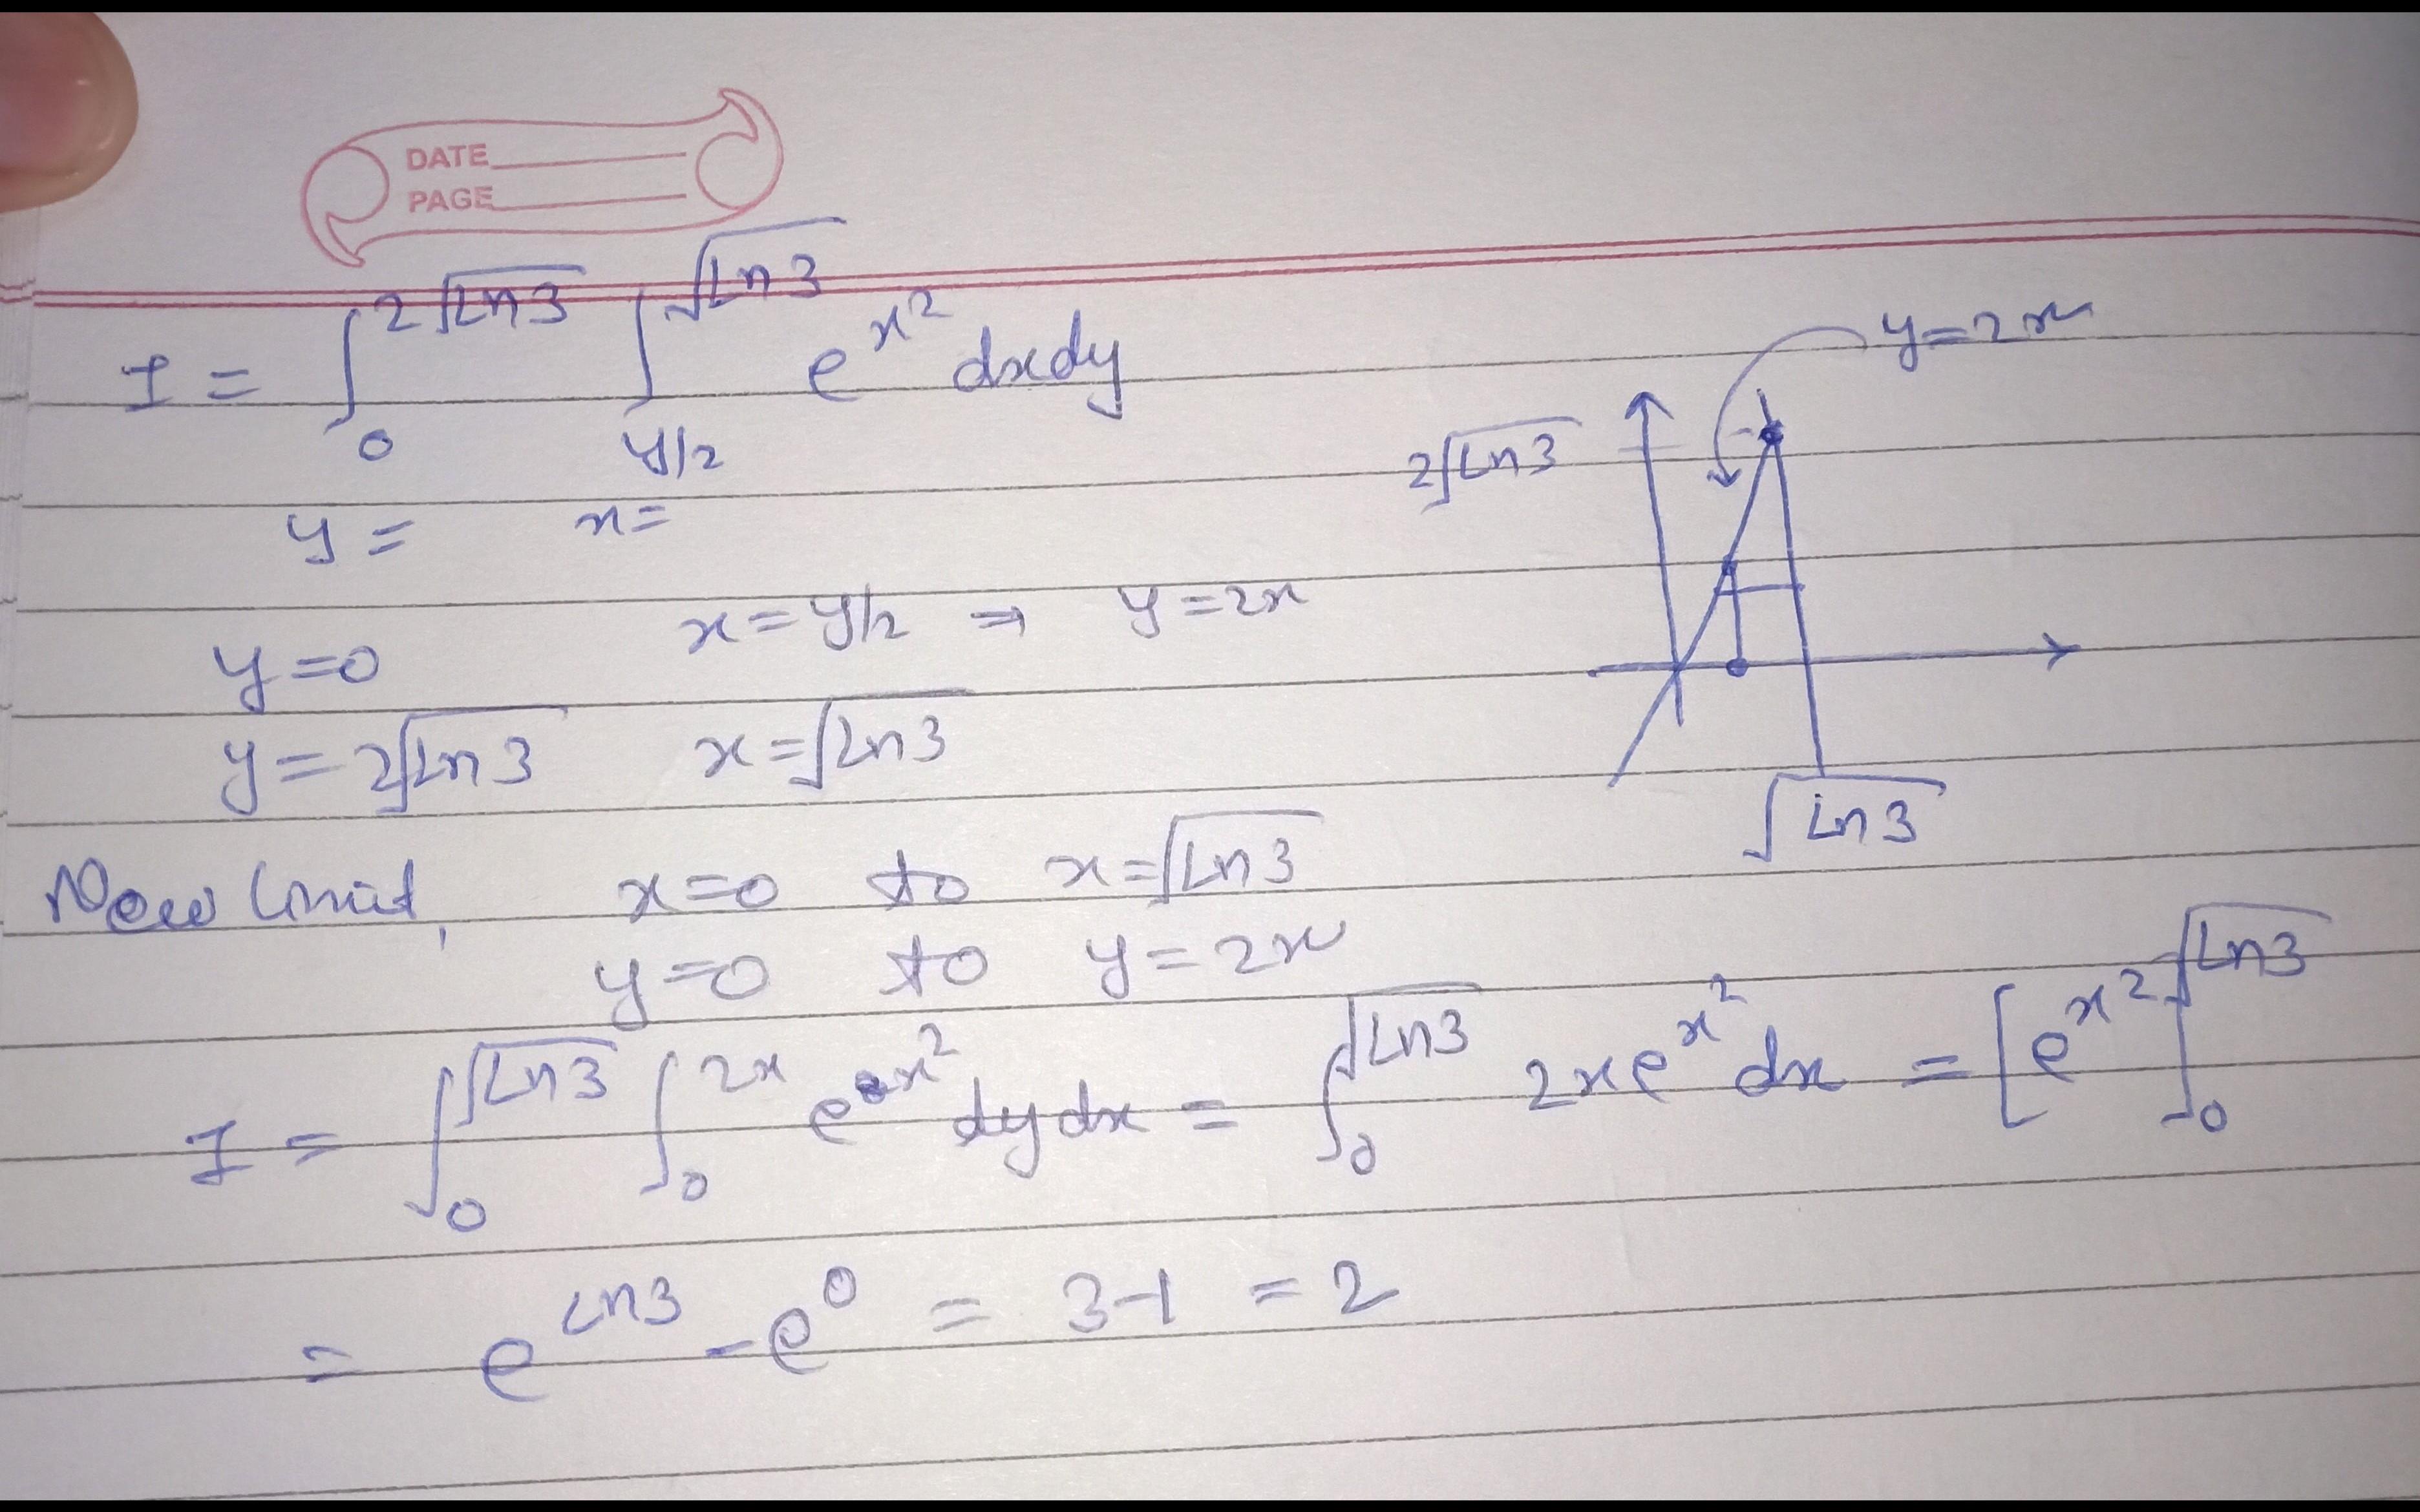 DATE
PAGE
I = ∫₀^{2√Ln3} ∫_{y/2}^{√Ln3} e^{x²} dxdy
y = x=
y=2x
2√Ln3
√Ln3
x=y/2 ⇒ y=2x
y=0
y=2√Ln3 x=√Ln3
New limit, x=0 to x=√Ln3
y=0 to y=2x
I = ∫₀^{√Ln3} ∫₀^{2x} e^{x²} dydx = ∫₀^{√Ln3} 2xe^{x²} dx = [e^{x²}]₀^{√Ln3}
= e^{Ln3} - e⁰ = 3-1 = 2